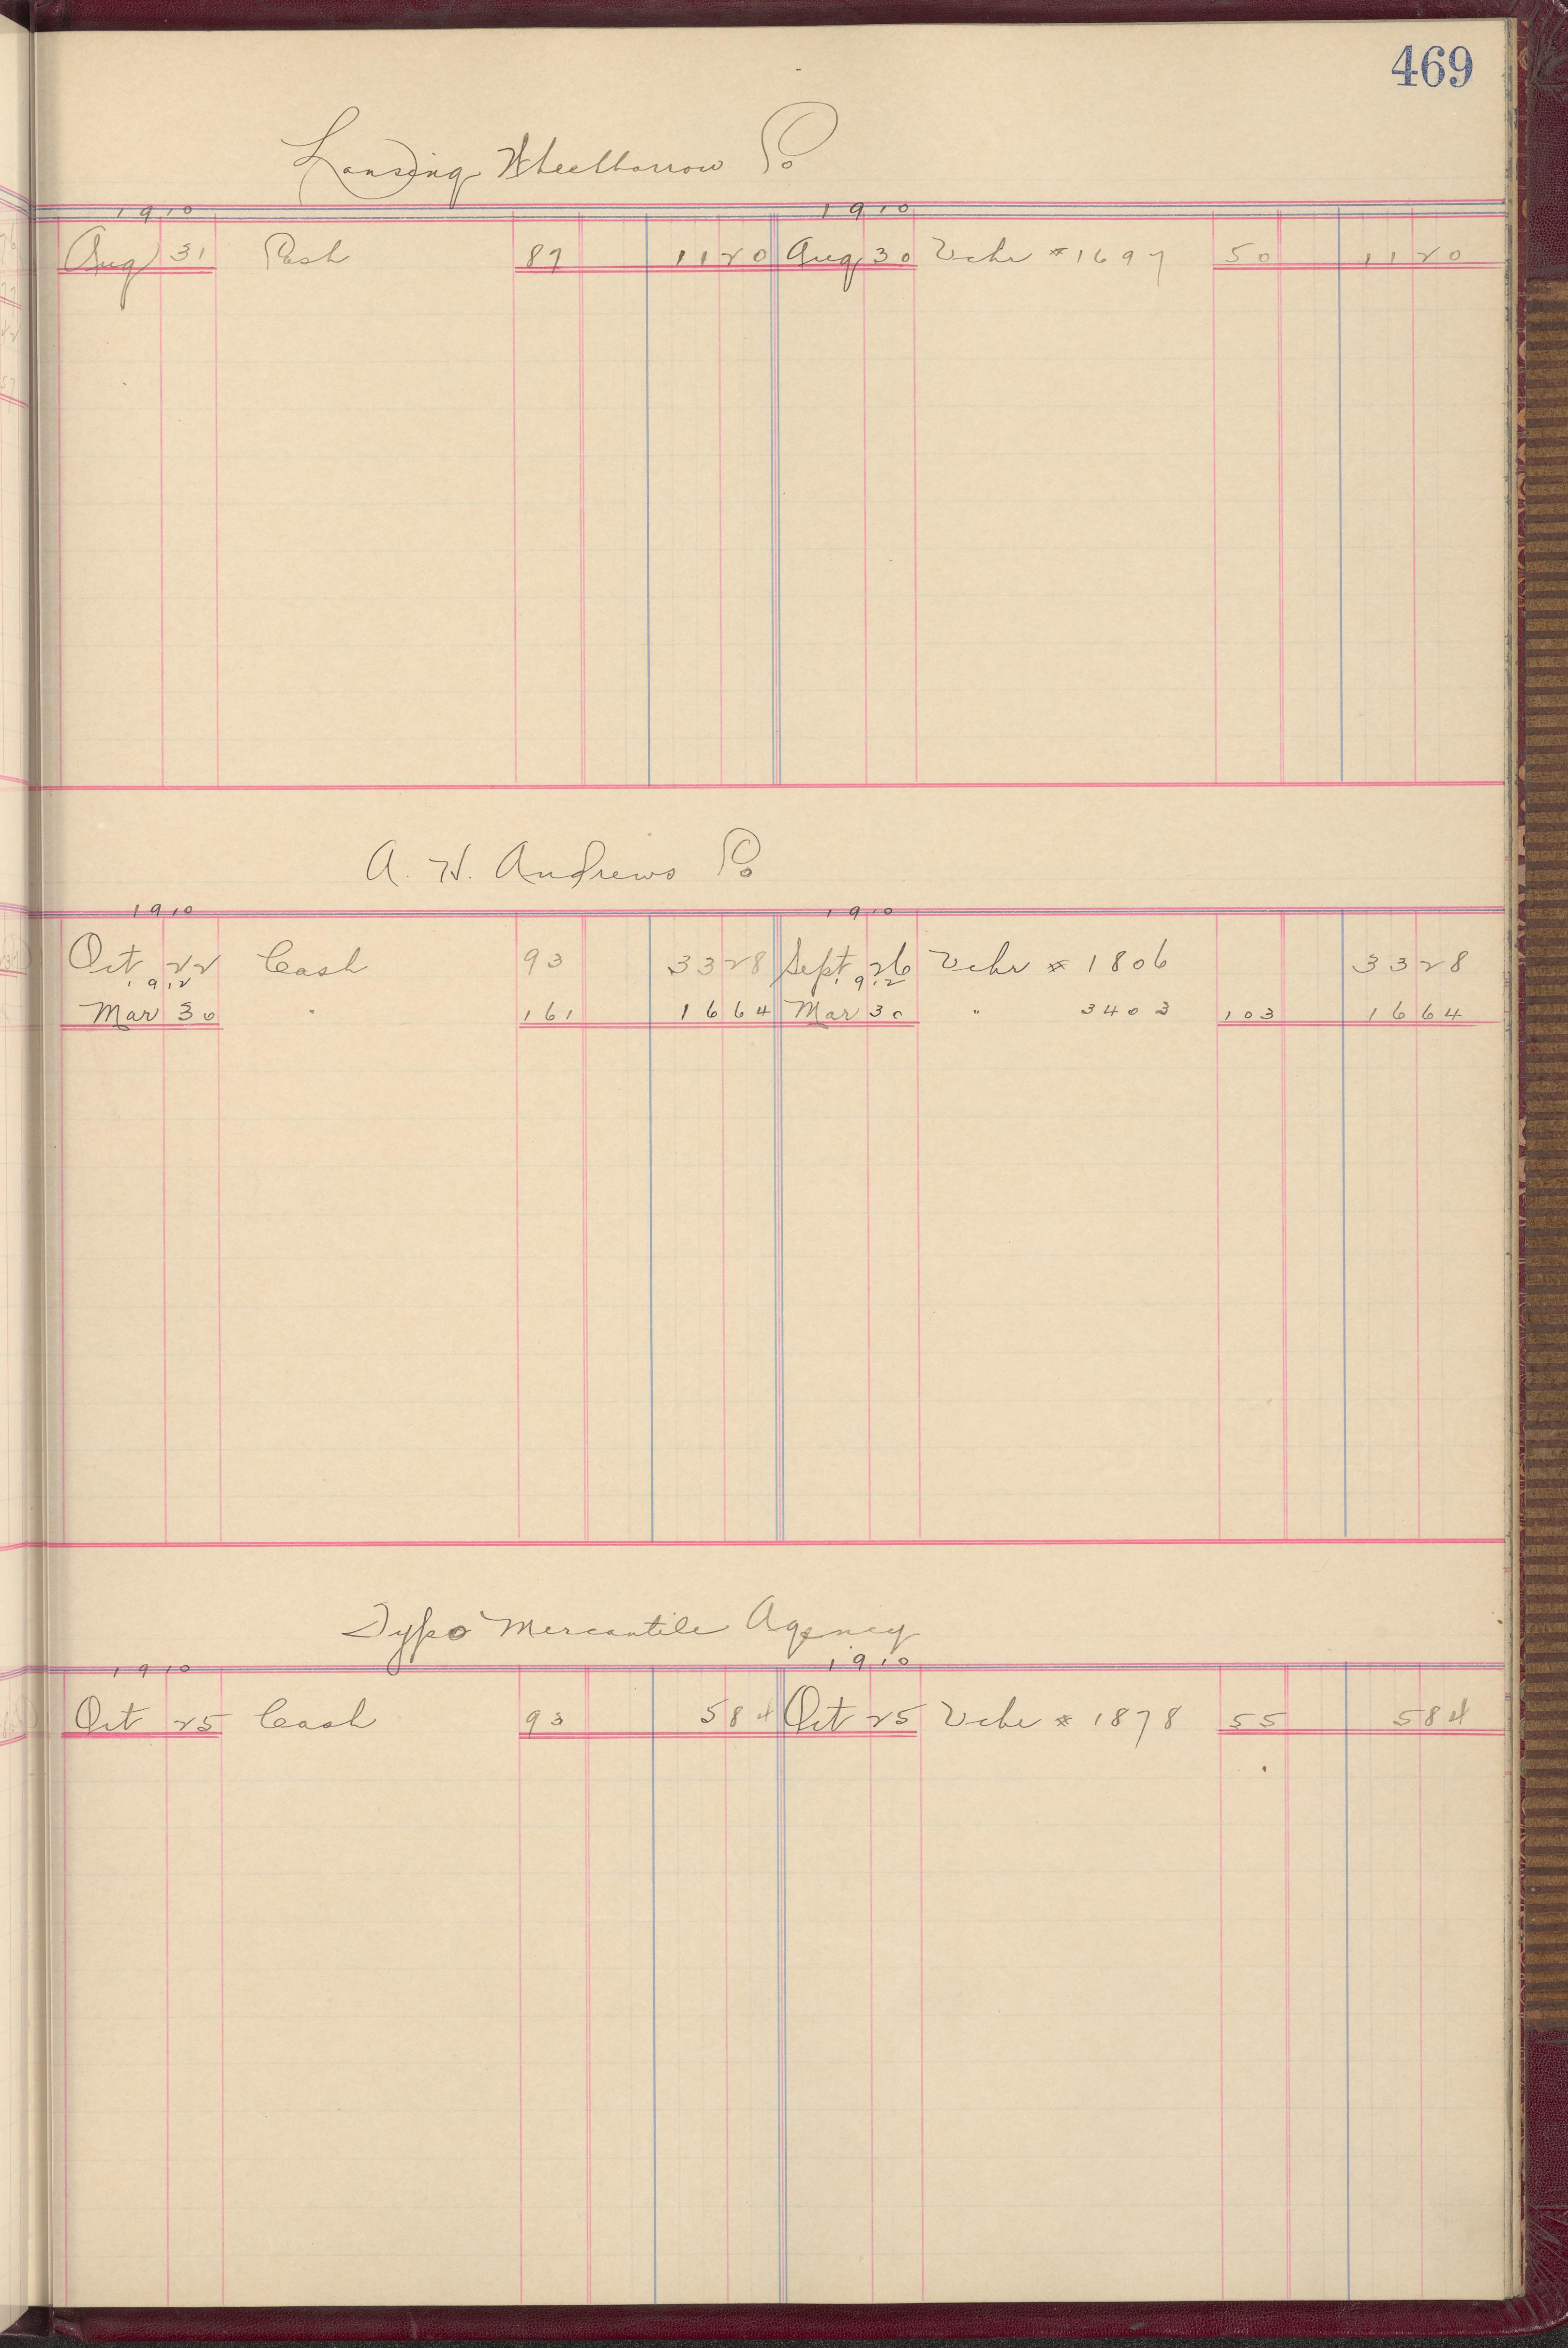 469
Lansing Wheelbarrow Co
1910 1910
Aug 31 Cash 87 11 20 Aug 30 Vchr # 1697 50 11 20
A. H. Andrews Co
1910 1910
Oct 22 Cash 93 33 28 Sept 26 Vchr # 1806 33 28
1912 1912
Mar 30 " 161 16 64 Mar 30 " 3403 103 16 64
Typo Mercantile Agency
1910 1910
Oct 25 Cash 93 5 84 Oct 25 Vchr # 1878 55 5 84